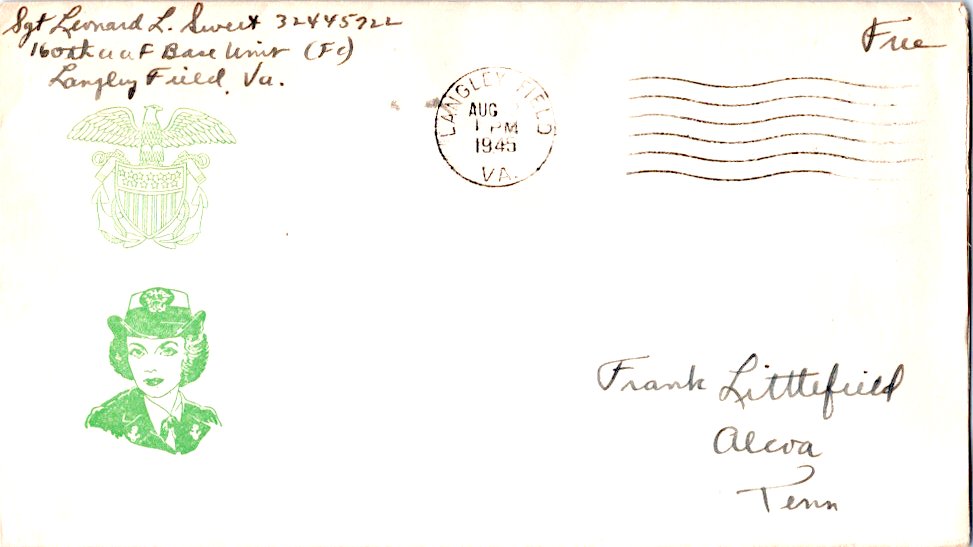 Sgt Leonard L. Sweet 32445722
160th aaF Base Unit (Fc)
Langley Field, Va.
Free
LANGLEY FIELD
AUG
1 PM
1945
VA.
Frank Littlefield
Alcoa
Tenn